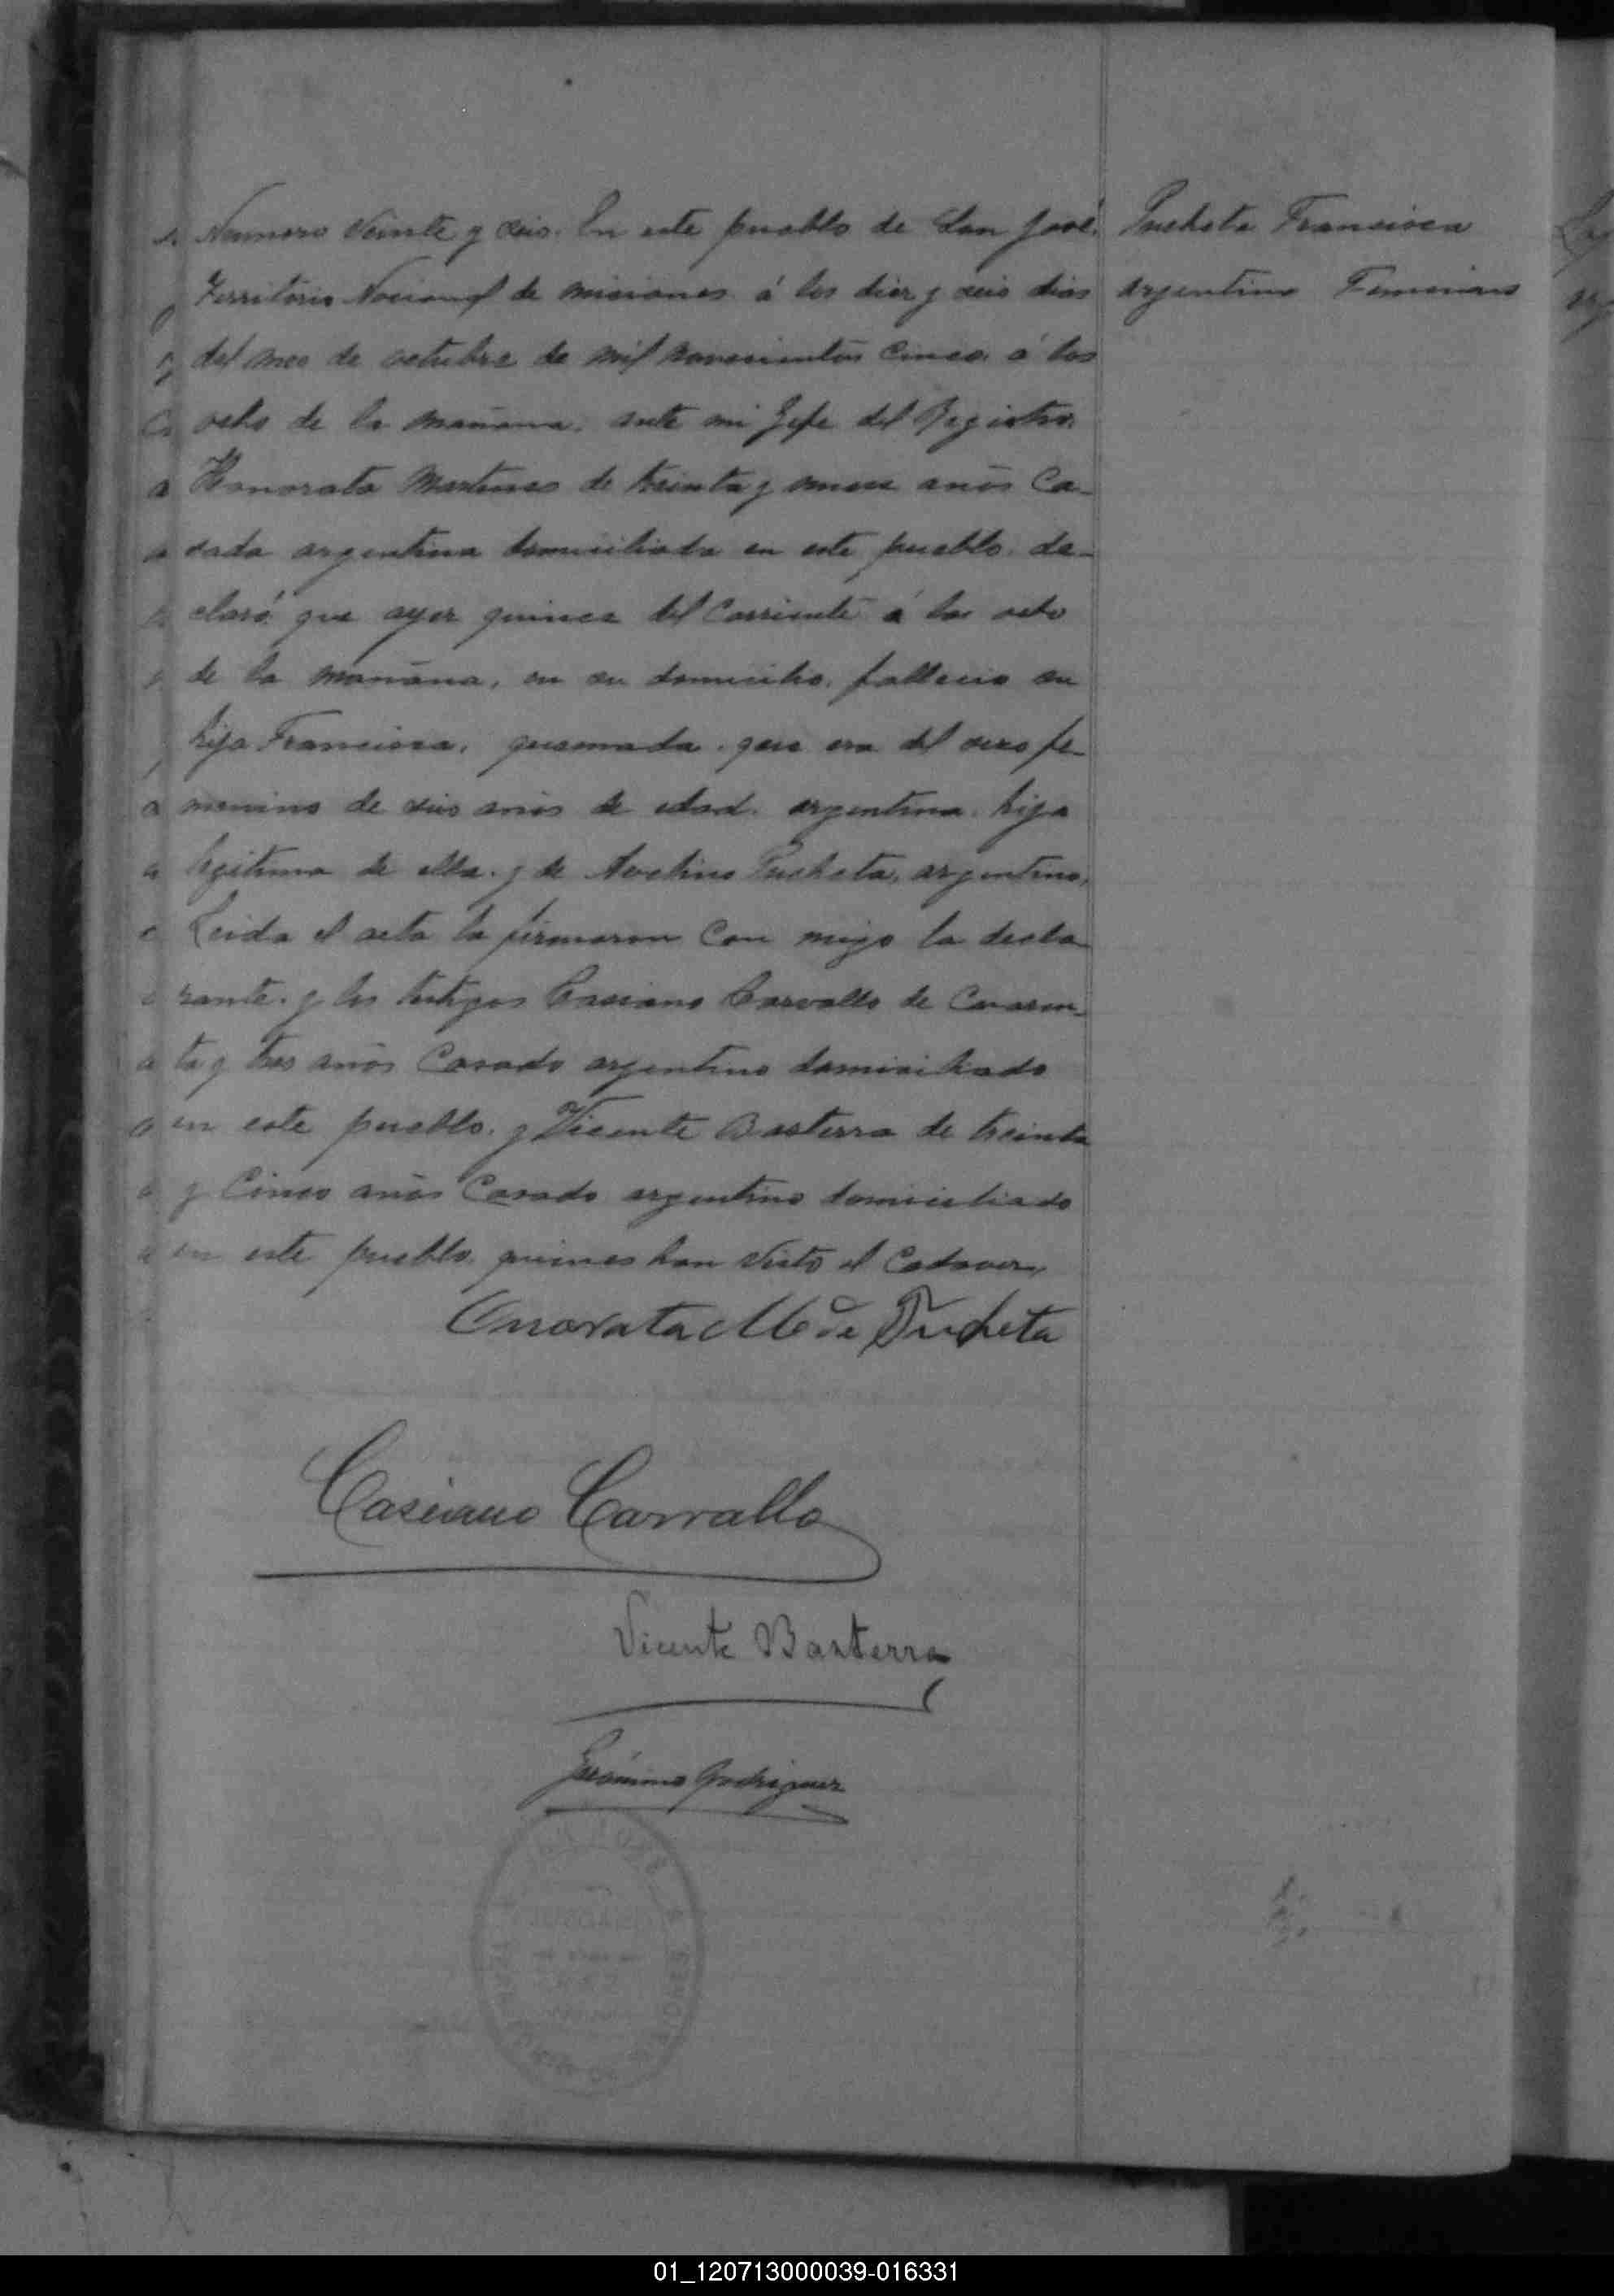 Numero Veinte y seis. En este pueblo de San José.
Territorio Nacional de misiones á los diez y seis dias
del mes de octubre de mil novecientos cinco. á las
ocho de la mañana. ante mi Gefe del Registro.
Honorata Martines de treinta y años Ca-
sada argentina domiciliada en este pueblo. de-
claró que ayer quince del Corriente á las ocho
de la mañana, en su domicilio. fallecio su
hija Francisca, quemada. que era del sexo fe-
menino de seis años de edad. argentina. hija
legitima de ella. y de Avelino Pucheta, argentino,
Leida el acta la firmaron Con migo la decla-
rante. y los testigos Casiano Carvallo de Cuaren-
ta y tres años Casado argentino domiciliado
en este pueblo. y Vicente Basterra de treinta
y Cinco años Casado argentino domiciliado
en este pueblo. quienes han visto el Cadaver,
Onorata M de Pucheta
Casiano Carvallo
Vicente Basterra
Gerónimo Rodriguez
Pucheta Francisca
argentina Femenino
01_120713000039-016331